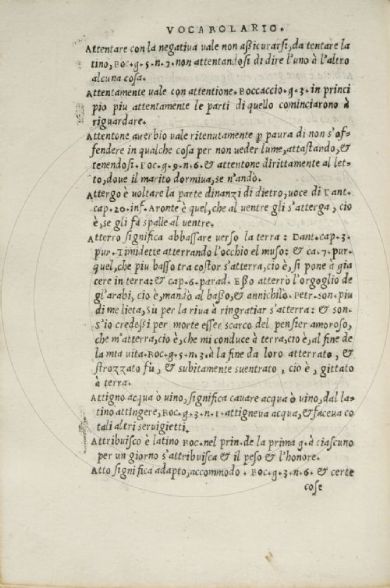 VOCABOLARIO.
Attentare con la negatiua vale non aßicurarsi, da tentare la
tino, Boc. g. 5. n. 7. non attentandosi di dire l'uno à l'altro
alcuna cosa.
Attentamente vale con attentione. Boccaccio. g. 3. in princi
pio piu attentamente le parti di quello cominciarono à
riguardare.
Attentone auerbio vale ritenutamente p paura di non s'of-
fendere in qualche cosa per non veder lume, attastando, &
tenendosi. Boc. g. 9. n. 6. & attentone dirittamente al let-
to, doue il marito dormiua, se n'andò.
Attergo è voltare la parte dinanzi di dietro, uoce di Dant.
cap. 20. inf. Aronte è quel, che al ventre gli s'atterga, cio
è, se gli fà spalle al ventre.
Atterro significa abbassare verso la terra: Dant. cap. 3.
pur. Tmidette atterrando l'occhio el muso: & ca. 7. pur.
quel, che piu basso tra costor s'atterra, cio è, si pone à gia
cere in terra: & cap. 6. parad. Eßo atterrò l'orgoglio de
gl'arabi, cio è, mandò al basso, & annichilò. Petr. son. piu
di me lieta, su per la riua à ringratiar s'atterra: & son.
s'io credeßi per morte esser scarco del pensier amoroso,
che m'atterra, cio è, che mi conduce à terra, cio è, al fine de
la mia vita. Boc. g. 5. n. 3. à la fine da loro atterrato, &
strozzato, fù, & subitamente suentrato, cio è, gittato
à terra.
Attigno acqua ò uino, significa cauare acqua ò vino, dal la-
tino attingere, Boc. g. 3. n. 1. attigneva acqua, & faceua co
tali altri seruigietti.
Attribuisco è latino Boc. nel prin. de la prima g. à ciascuno
per un giorno s'attribuisca & il peso & l'honore.
Atto significa adapto, accommodo. Boc. g. 3. n. 6. & certe
cose